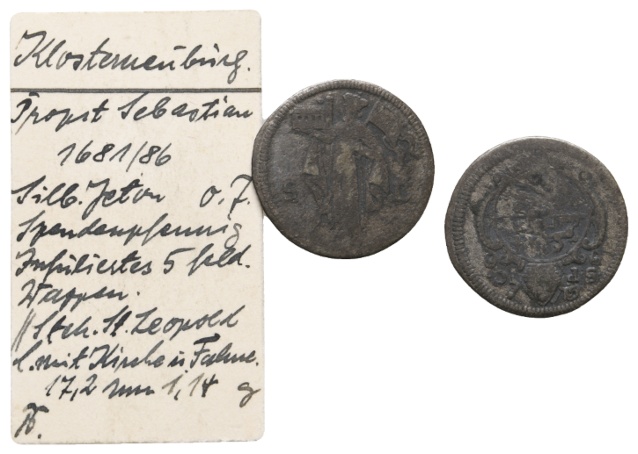 Klosterneuburg.
Propst Sebastian
1681/86
Silb. Jeton o. J.
Spendenpfennig
Infuliertes 5 feld.
Wappen.
// Steh. St. Leopold
l. mit Kirche u Fahne.
17,2 mm 1,14 g
S L